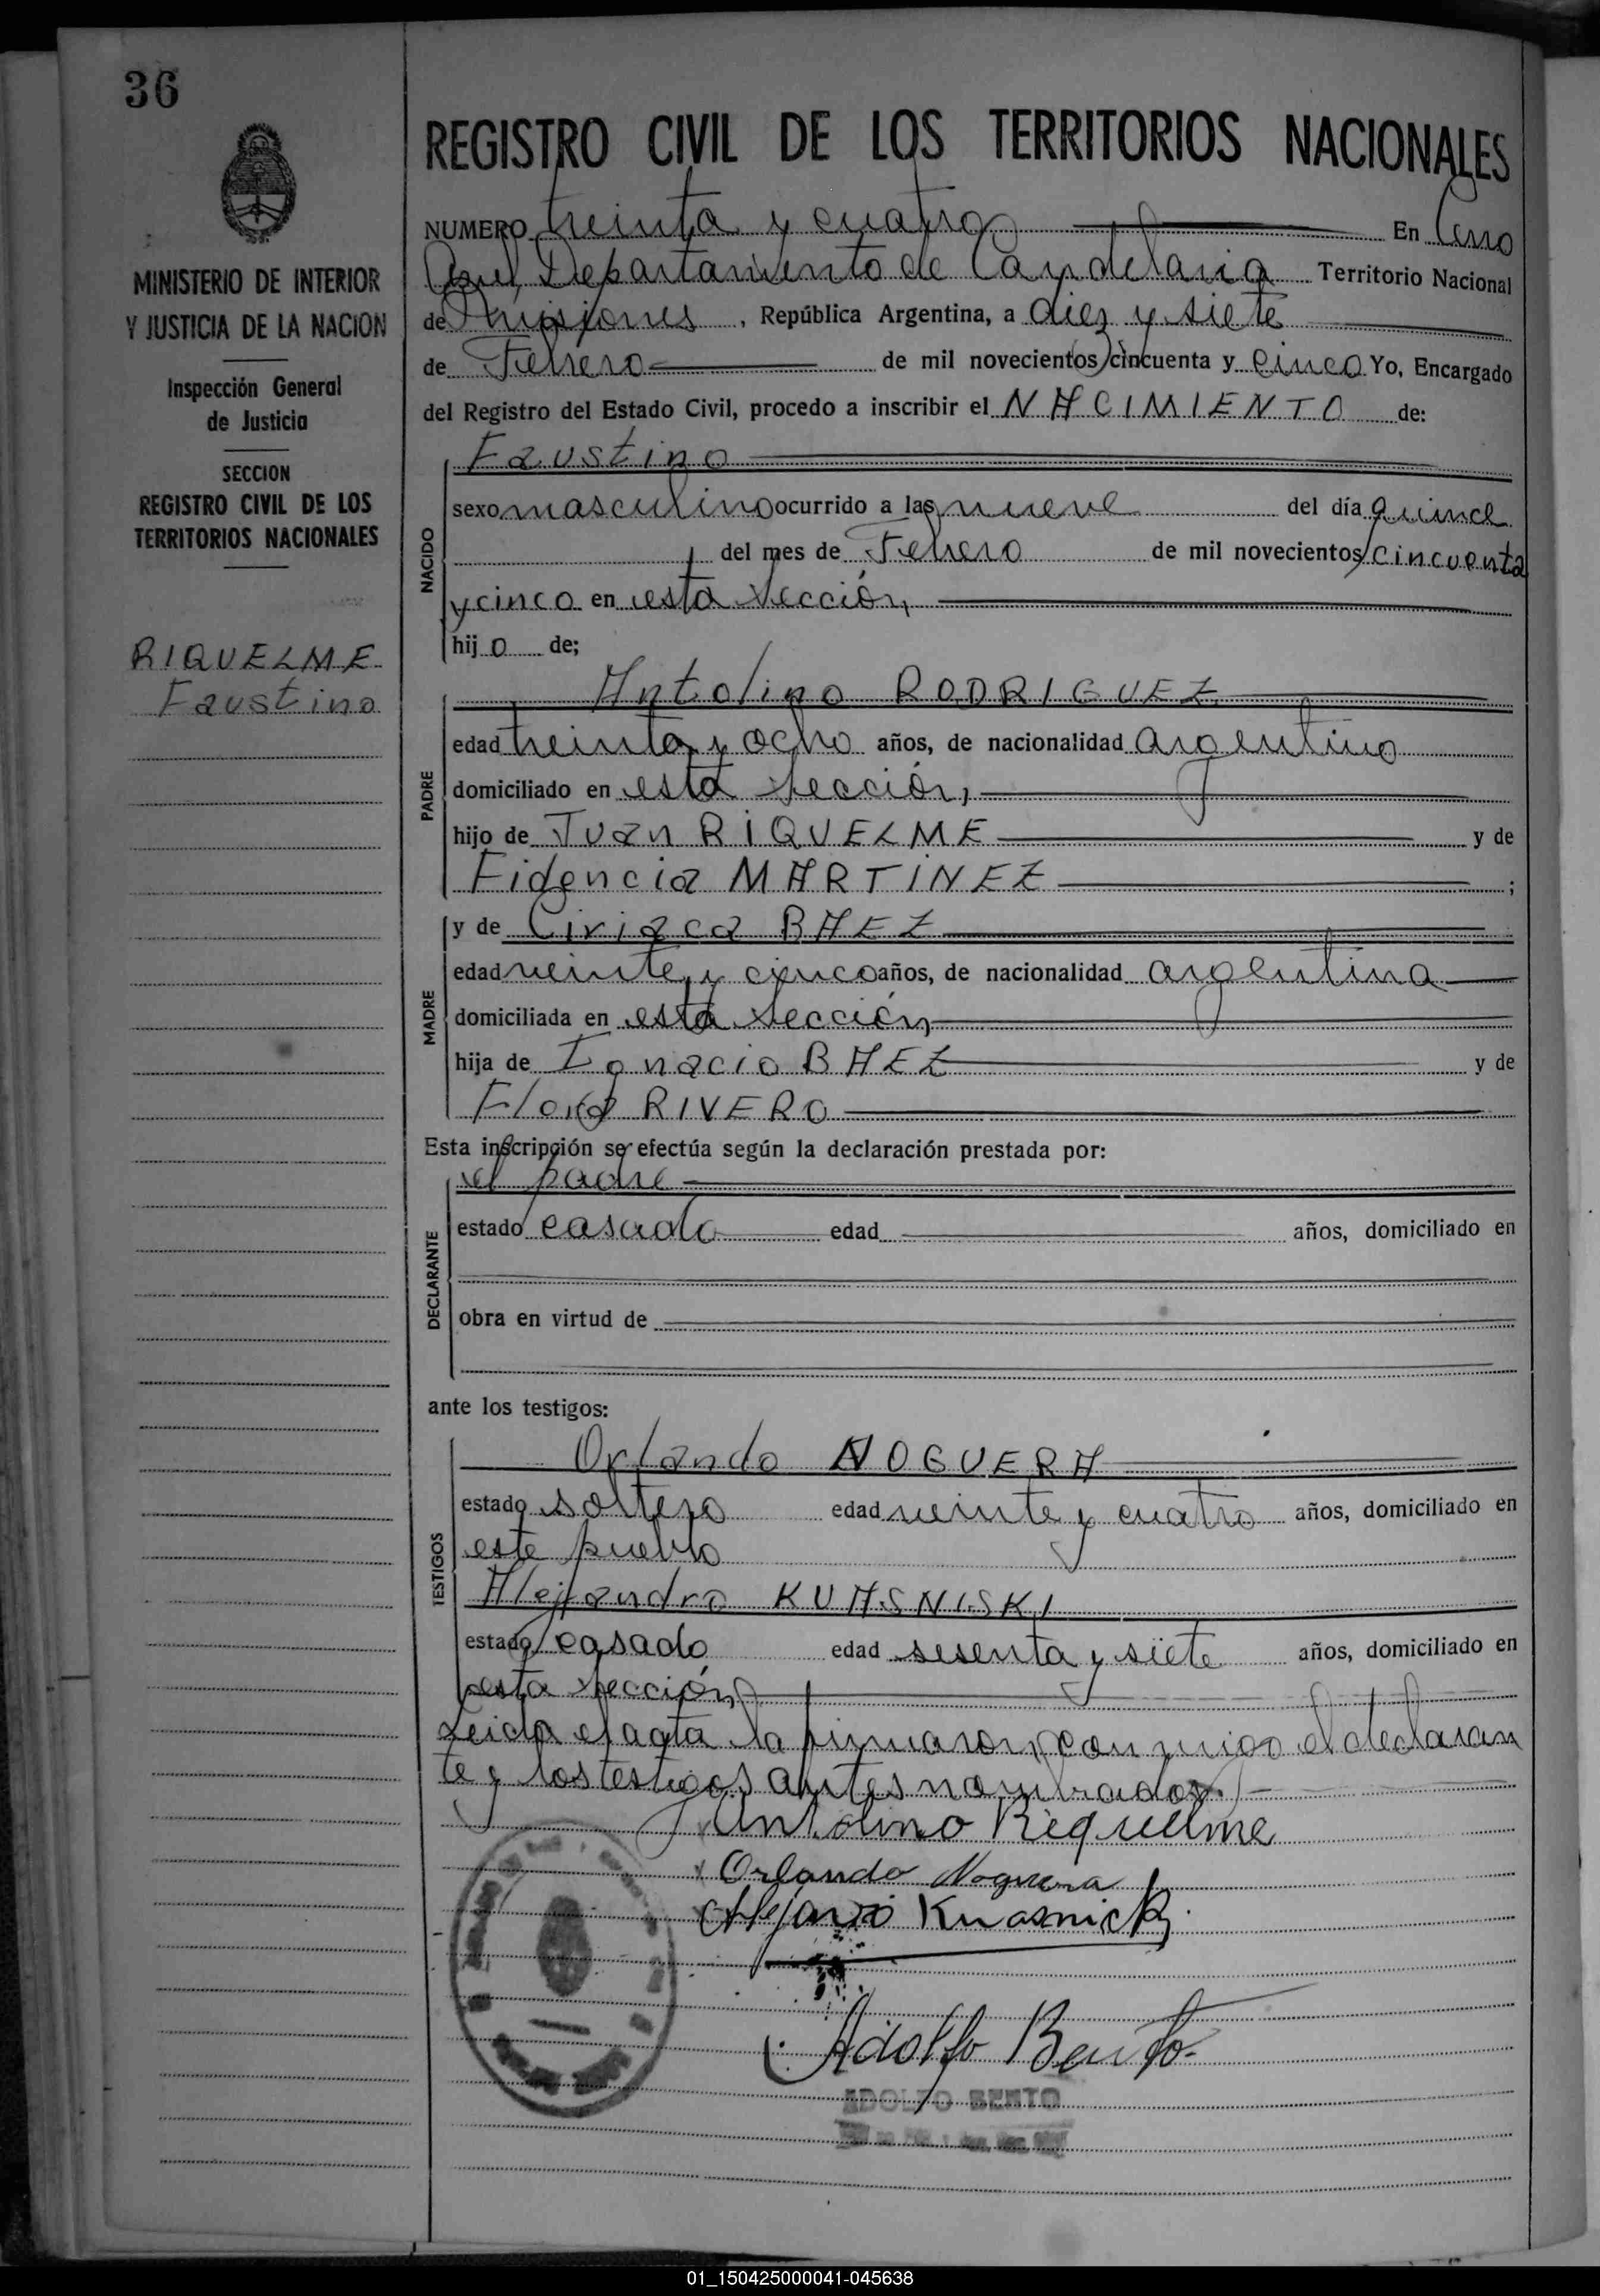 36
MINISTERIO DE INTERIOR
Y JUSTICIA DE LA NACION
Inspección General
de Justicia
SECCION
REGISTRO CIVIL DE LOS
TERRITORIOS NACIONALES
RIQUELME
Faustino
REGISTRO CIVIL DE LOS TERRITORIOS NACIONALES
NUMERO treinta y cuatro En Cerro
Azul, Departamento de Candelaria Territorio Nacional
de Misiones, República Argentina, a diez y siete
de Febrero de mil novecientos cincuenta y cinco Yo, Encargado
del Registro del Estado Civil, procedo a inscribir el NACIMIENTO de:
NACIDO
Faustino
sexo masculino ocurrido a las nueve del día quince
del mes de Febrero de mil novecientos cincuenta
y cinco en esta Sección,
hijo de;
PADRE
Antolino RODRIGUEZ
edad treinta y ocho años, de nacionalidad argentino
domiciliado en esta Sección,
hijo de Juan RIQUELME y de
Fidencia MARTINEZ ;
MADRE
y de Ciriaca BAEZ
edad veinte y cinco años, de nacionalidad argentina
domiciliada en esta Sección,
hija de Ignacio BAEZ y de
Flora RIVERO
Esta inscripción se efectúa según la declaración prestada por:
DECLARANTE
el padre
estado casado edad años, domiciliado en
obra en virtud de
ante los testigos:
TESTIGOS
Orlando NOGUERA
estado soltero edad veinte y cuatro años, domiciliado en
este pueblo
Alejandro KUASNISKI
estado casado edad sesenta y siete años, domiciliado en
esta Sección,
Leida el acta la firmaron conmigo el declaran
te y los testigos antes nombrados.
Antolino Riquelme
Orlando Noguera
Adolfo Bento
ADOLFO BENTO
01_150425000041-045638